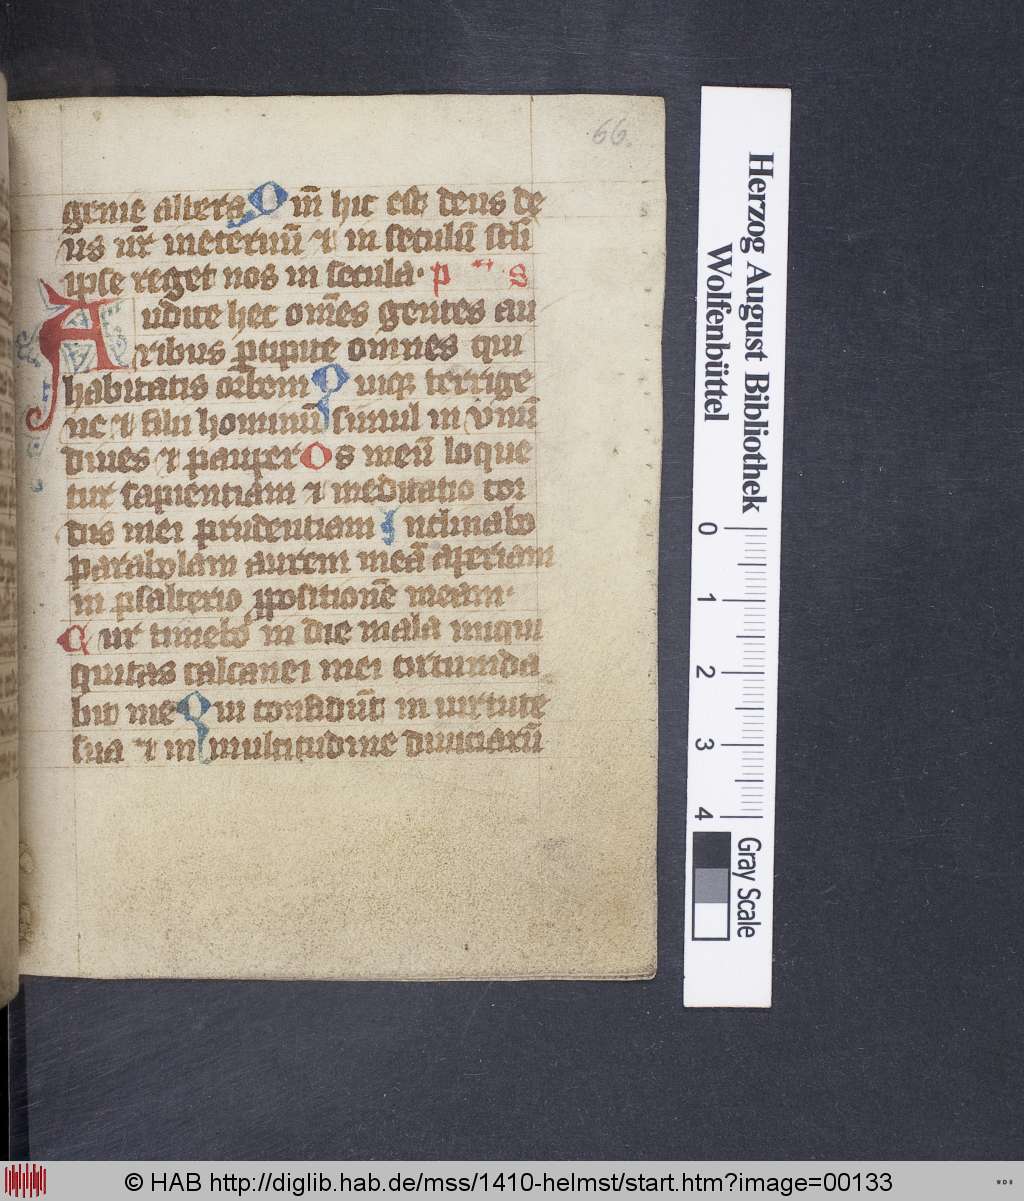 66.
genie altera Qm̄ hic est deus de
us nr̄ ineternū ⁊ in seculū scłi
ipse reget nos in secula· p s
Audite hec om̄es gentes au
ribus ꝑcipite omnes qui
habitatis orbem Quiqꝫ terrige
ne ⁊ filii hominū simul in vnū
diues ⁊ pauper Os meū loque
tur sapientiam ⁊ meditatio cor
dis mei prudentiam Inclinabo
parabolam aurem meā aperiam
in psalterio ꝓpositionē meam·
Cur timebo in die mala iniqui
quitas calcanei mei circumda
bit me Qui confidūt in uirtute
sua ⁊ in multitudine diuiciarū
Herzog August Bibliothek
Wolfenbüttel
0 1 2 3 4
Gray Scale
© HAB http://diglib.hab.de/mss/1410-helmst/start.htm?image=00133